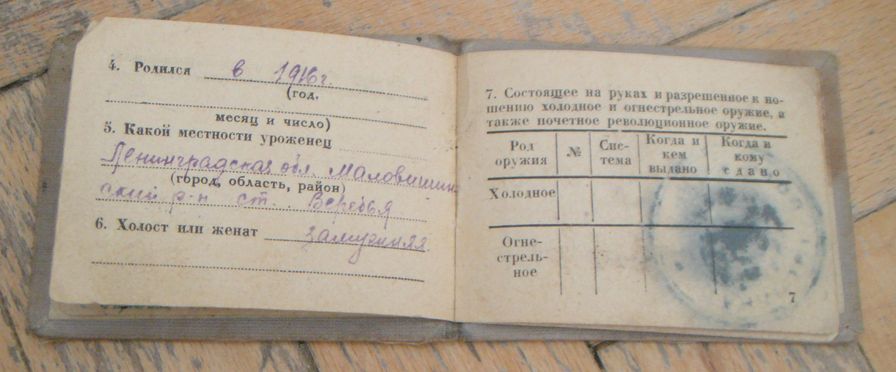 4. Родился в 1916 г.
(год,
месяц и число)
5. Какой местности уроженец
Ленинградская обл. Маловишер
(город, область, район)
ский р-н ст. Веребья
6. Холост или женат замужняя
7. Состоящее на руках и разрешенное к но-
шению холодное и огнестрельное оружие, а
также почетное революционное оружие.
Род оружия
№
Сис-
тема
Когда и
кем
выдано
Когда и
кому
сдано
Холодное
Огне-
стрель-
ное
7